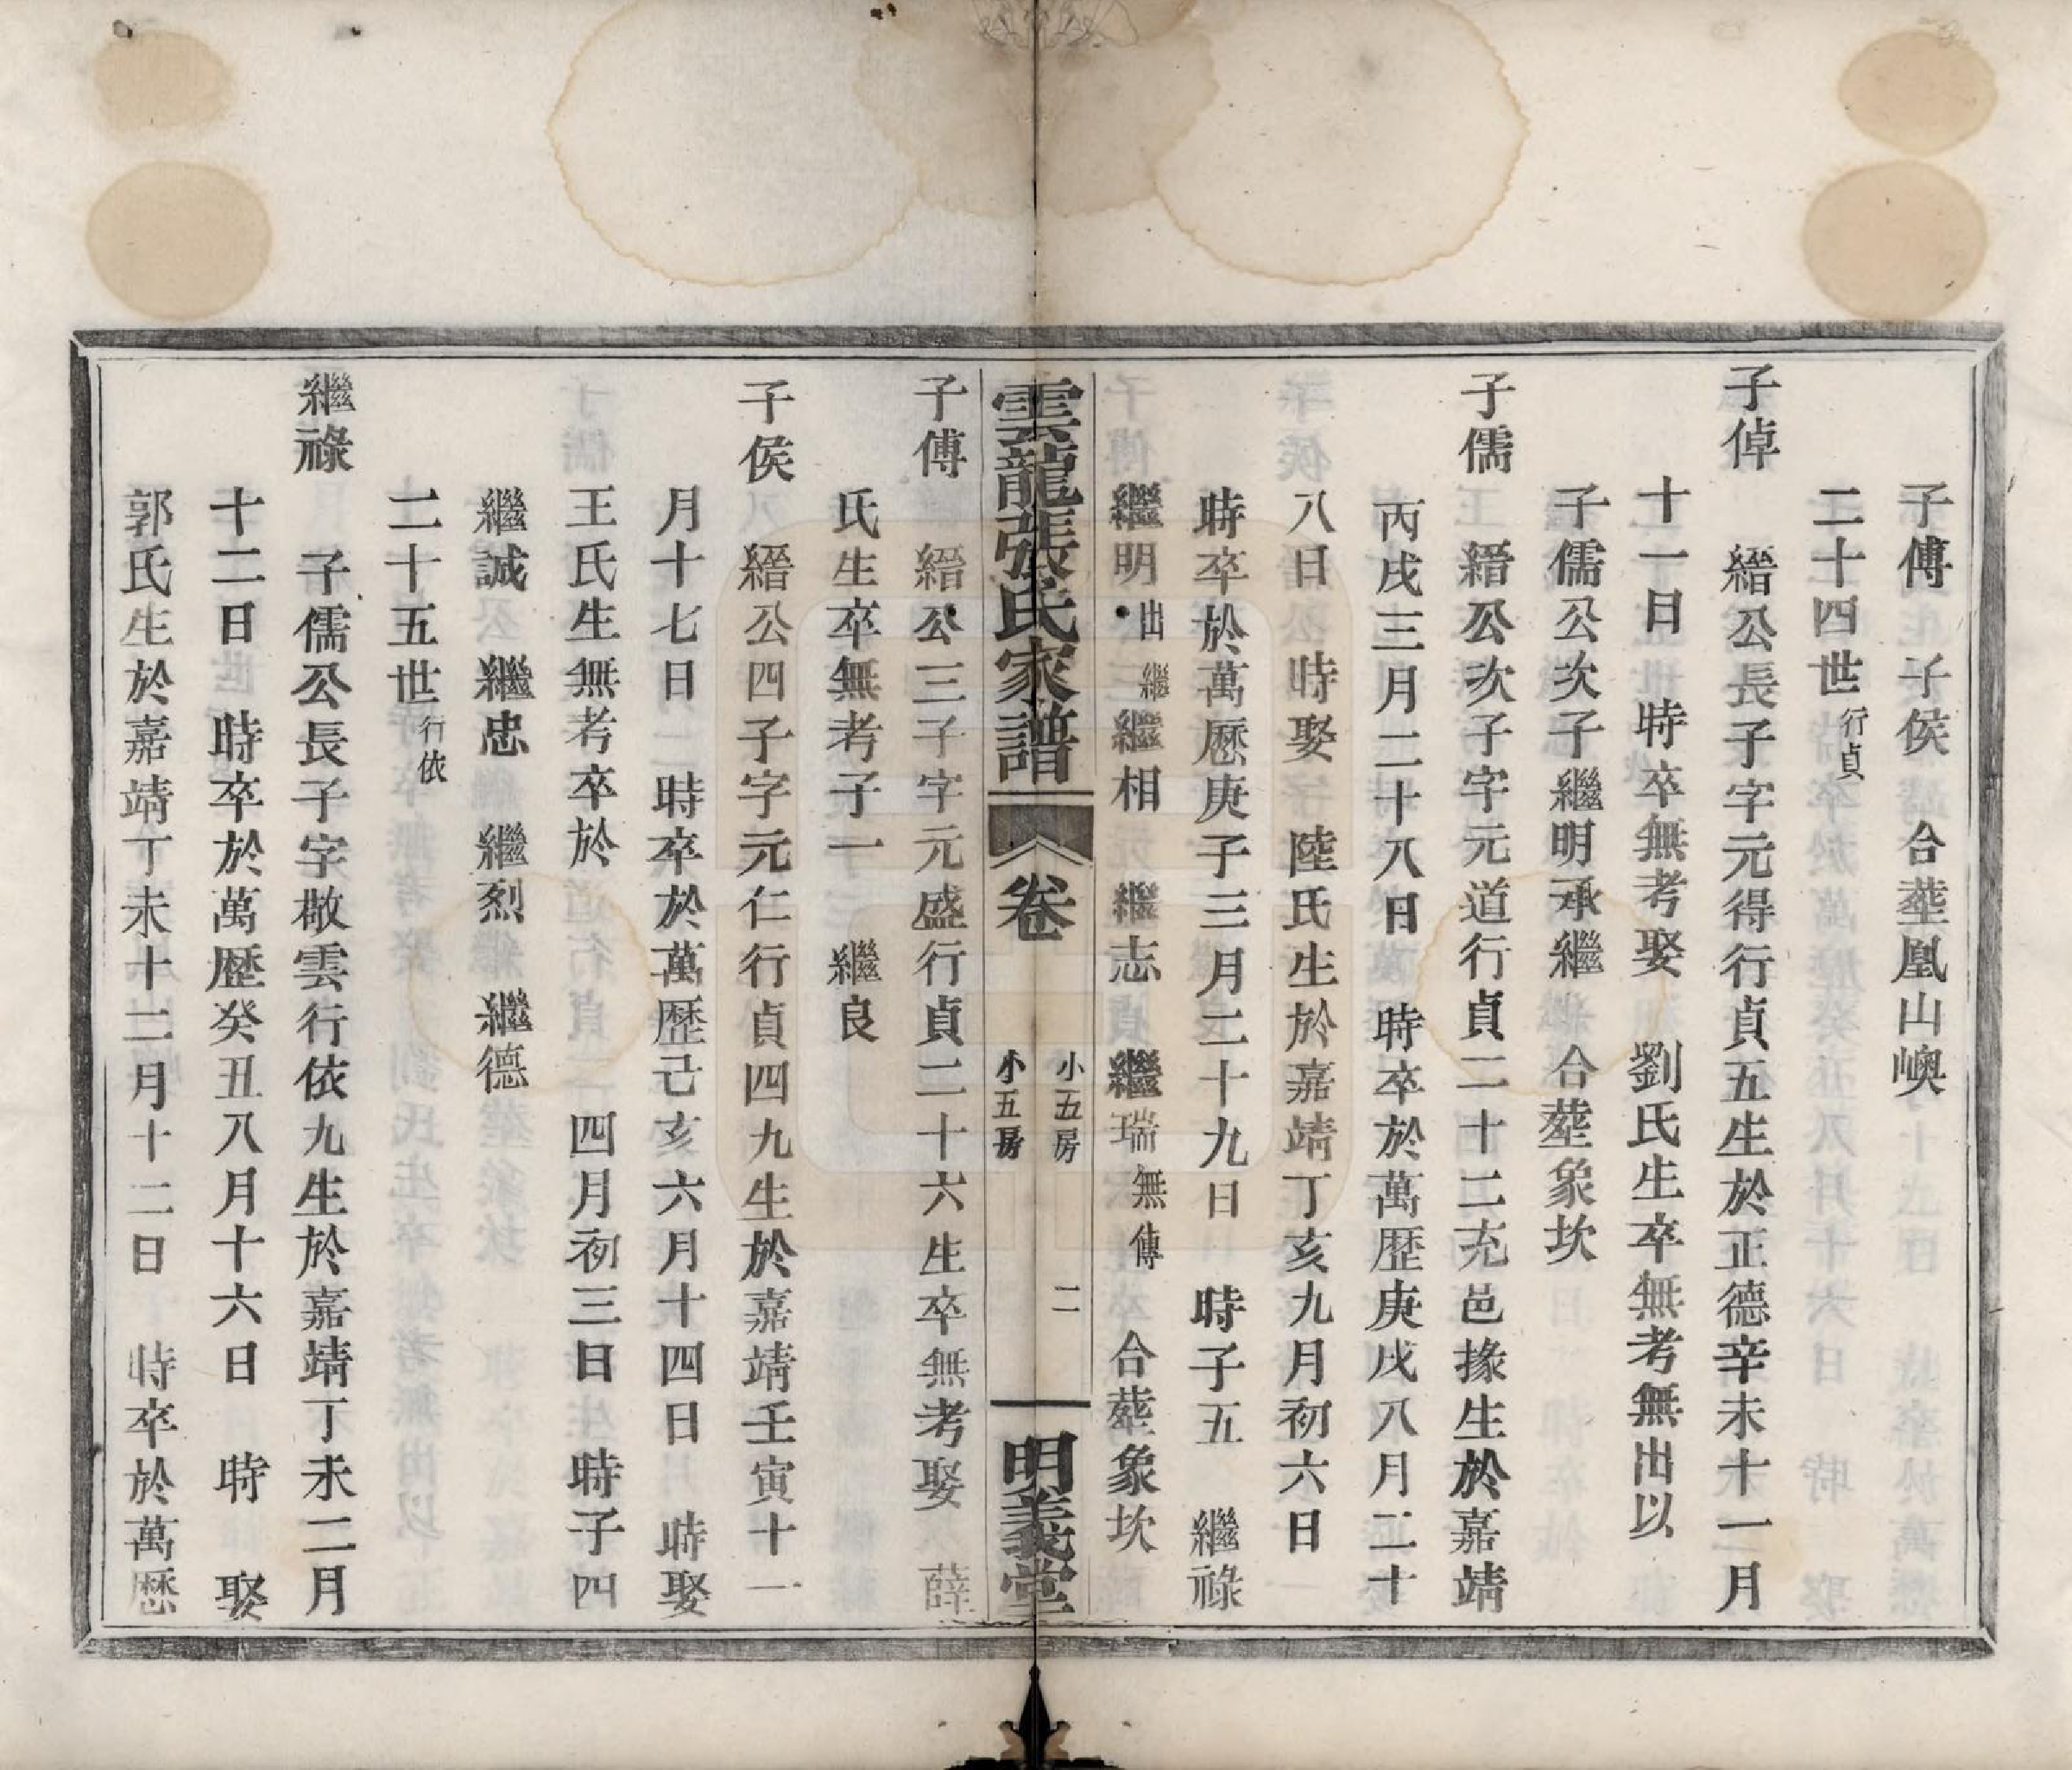 子傅 子侯 合塟凰山㠗
二十四世行貞
子倬 縉公長子字元得行貞五生於正德辛未十一月
十一日 時卒無考娶 劉氏生卒無考無出以
子儒公次子繼明承繼 合塟象坎
子儒 縉公次子字元道行貞二十二充邑掾生於嘉靖
丙戌三月二十八日 時卒於萬歷庚戌八月二十
八日 時娶 陸氏生於嘉靖丁亥九月初六日
時卒於萬歷庚子三月二十九日 時子五 繼祿
繼明出繼 繼相 繼志 繼瑞無傳 合塟象坎
雲龍張氏家譜 卷 小五房 小五房 二 明義堂
子傅 縉公三子字元盛行貞二十六生卒無考娶 薛
氏生卒無考子一 繼良
子侯 縉公四子字元仁行貞四九生於嘉靖壬寅十一
月十七日 時卒於萬歷己亥六月十四日 時娶
王氏生無考卒於 四月初三日 時子四
繼誠 繼忠 繼烈 繼德
二十五世行依
繼祿 子儒公長子字敬雲行依九生於嘉靖丁未二月
十二日 時卒於萬歷癸丑八月十六日 時 娶
郭氏生於嘉靖丁未十二月十二日 時卒於萬歷